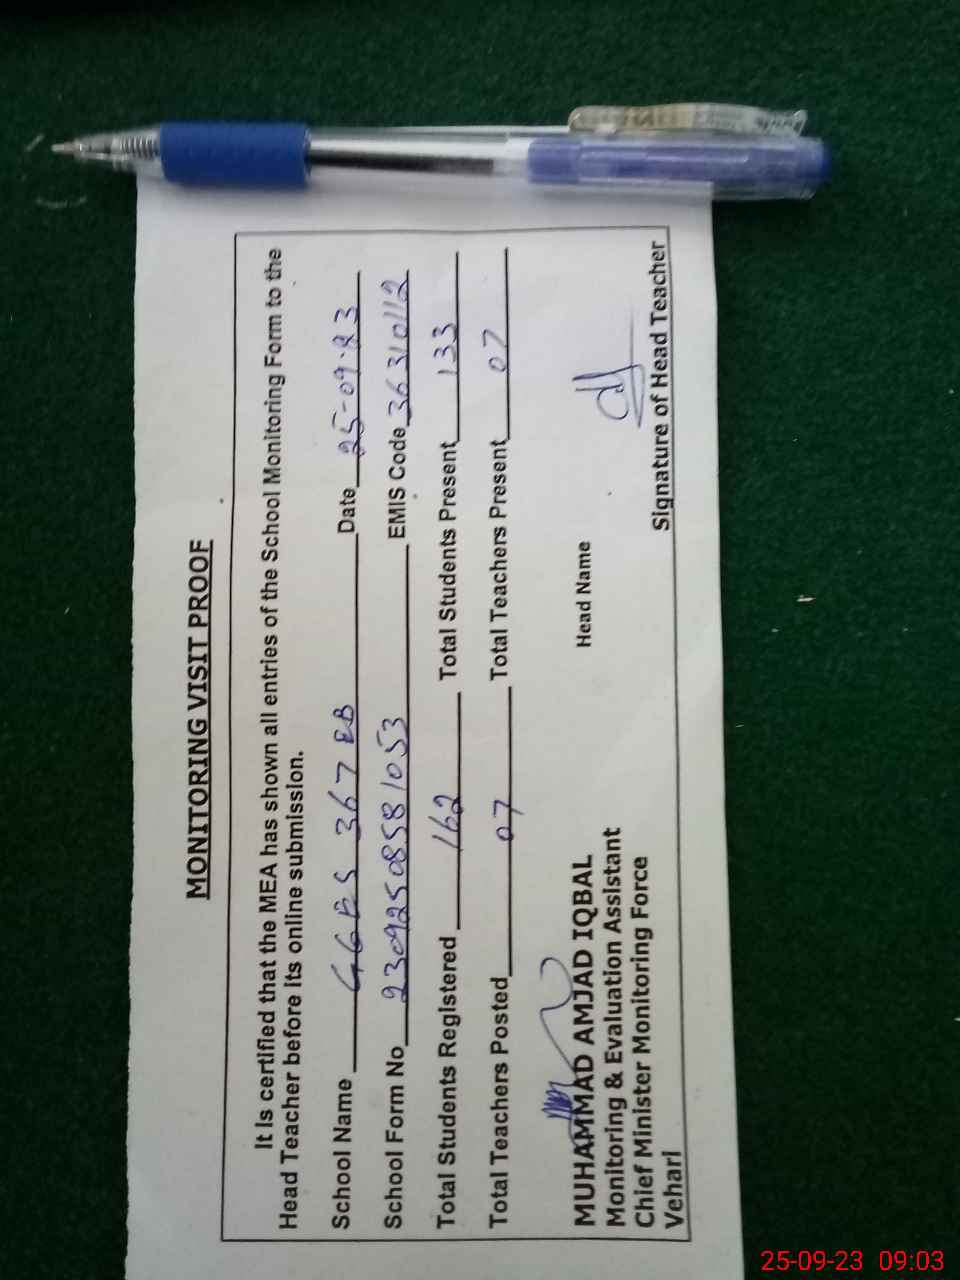 MONITORING VISIT PROOF
It is certified that the MEA has shown all entries of the School Monitoring Form to the
Head Teacher before its online submission.
School Name GGES 367 EB Date 25-09-23
School Form No 230925085581053 EMIS Code 36310112
Total Students Registered 162 Total Students Present 133
Total Teachers Posted 07 Total Teachers Present 07
MUHAMMAD AMJAD IQBAL Head Name
Monitoring & Evaluation Assistant
Chief Minister Monitoring Force
Vehari Signature of Head Teacher
25-09-23 09:03